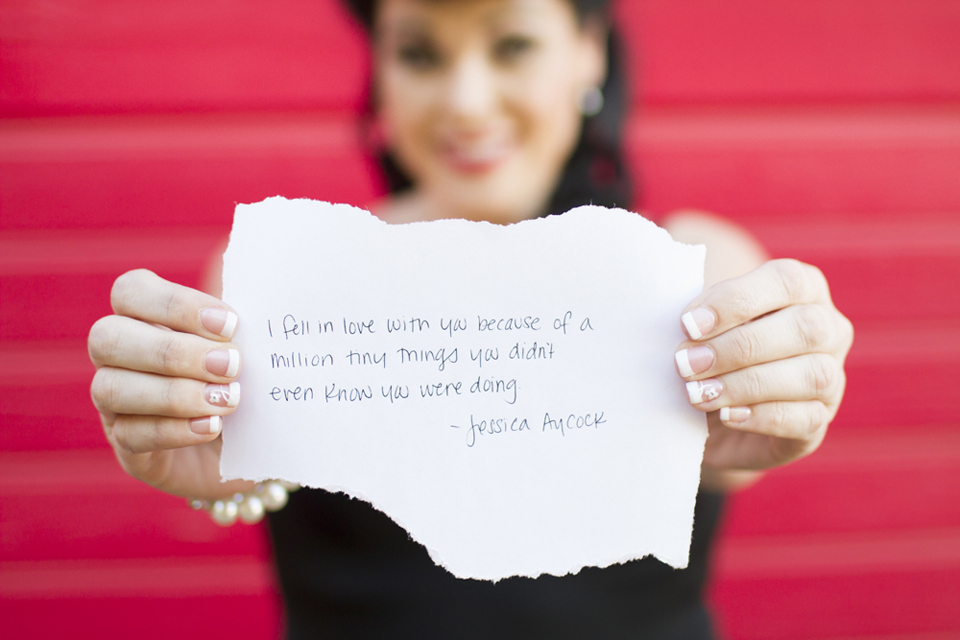 I fell in love with you because of a
million tiny things you didn't
even know you were doing.
- Jessica Aycock